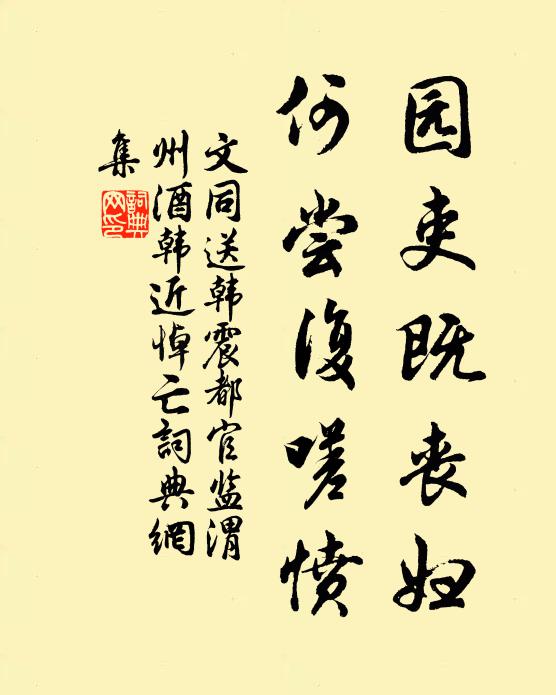 园吏既丧妇
何尝复嗟愤
文同送韩震都官监渭
州酒韩近悼亡詞典網
集
詞典网印